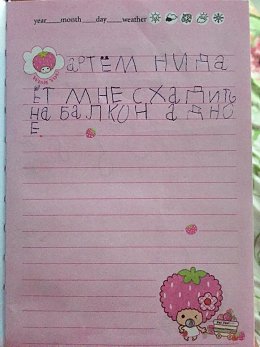 year____month____day____weather
артЁм нида
ёт мне схадить
на балкон адно
е